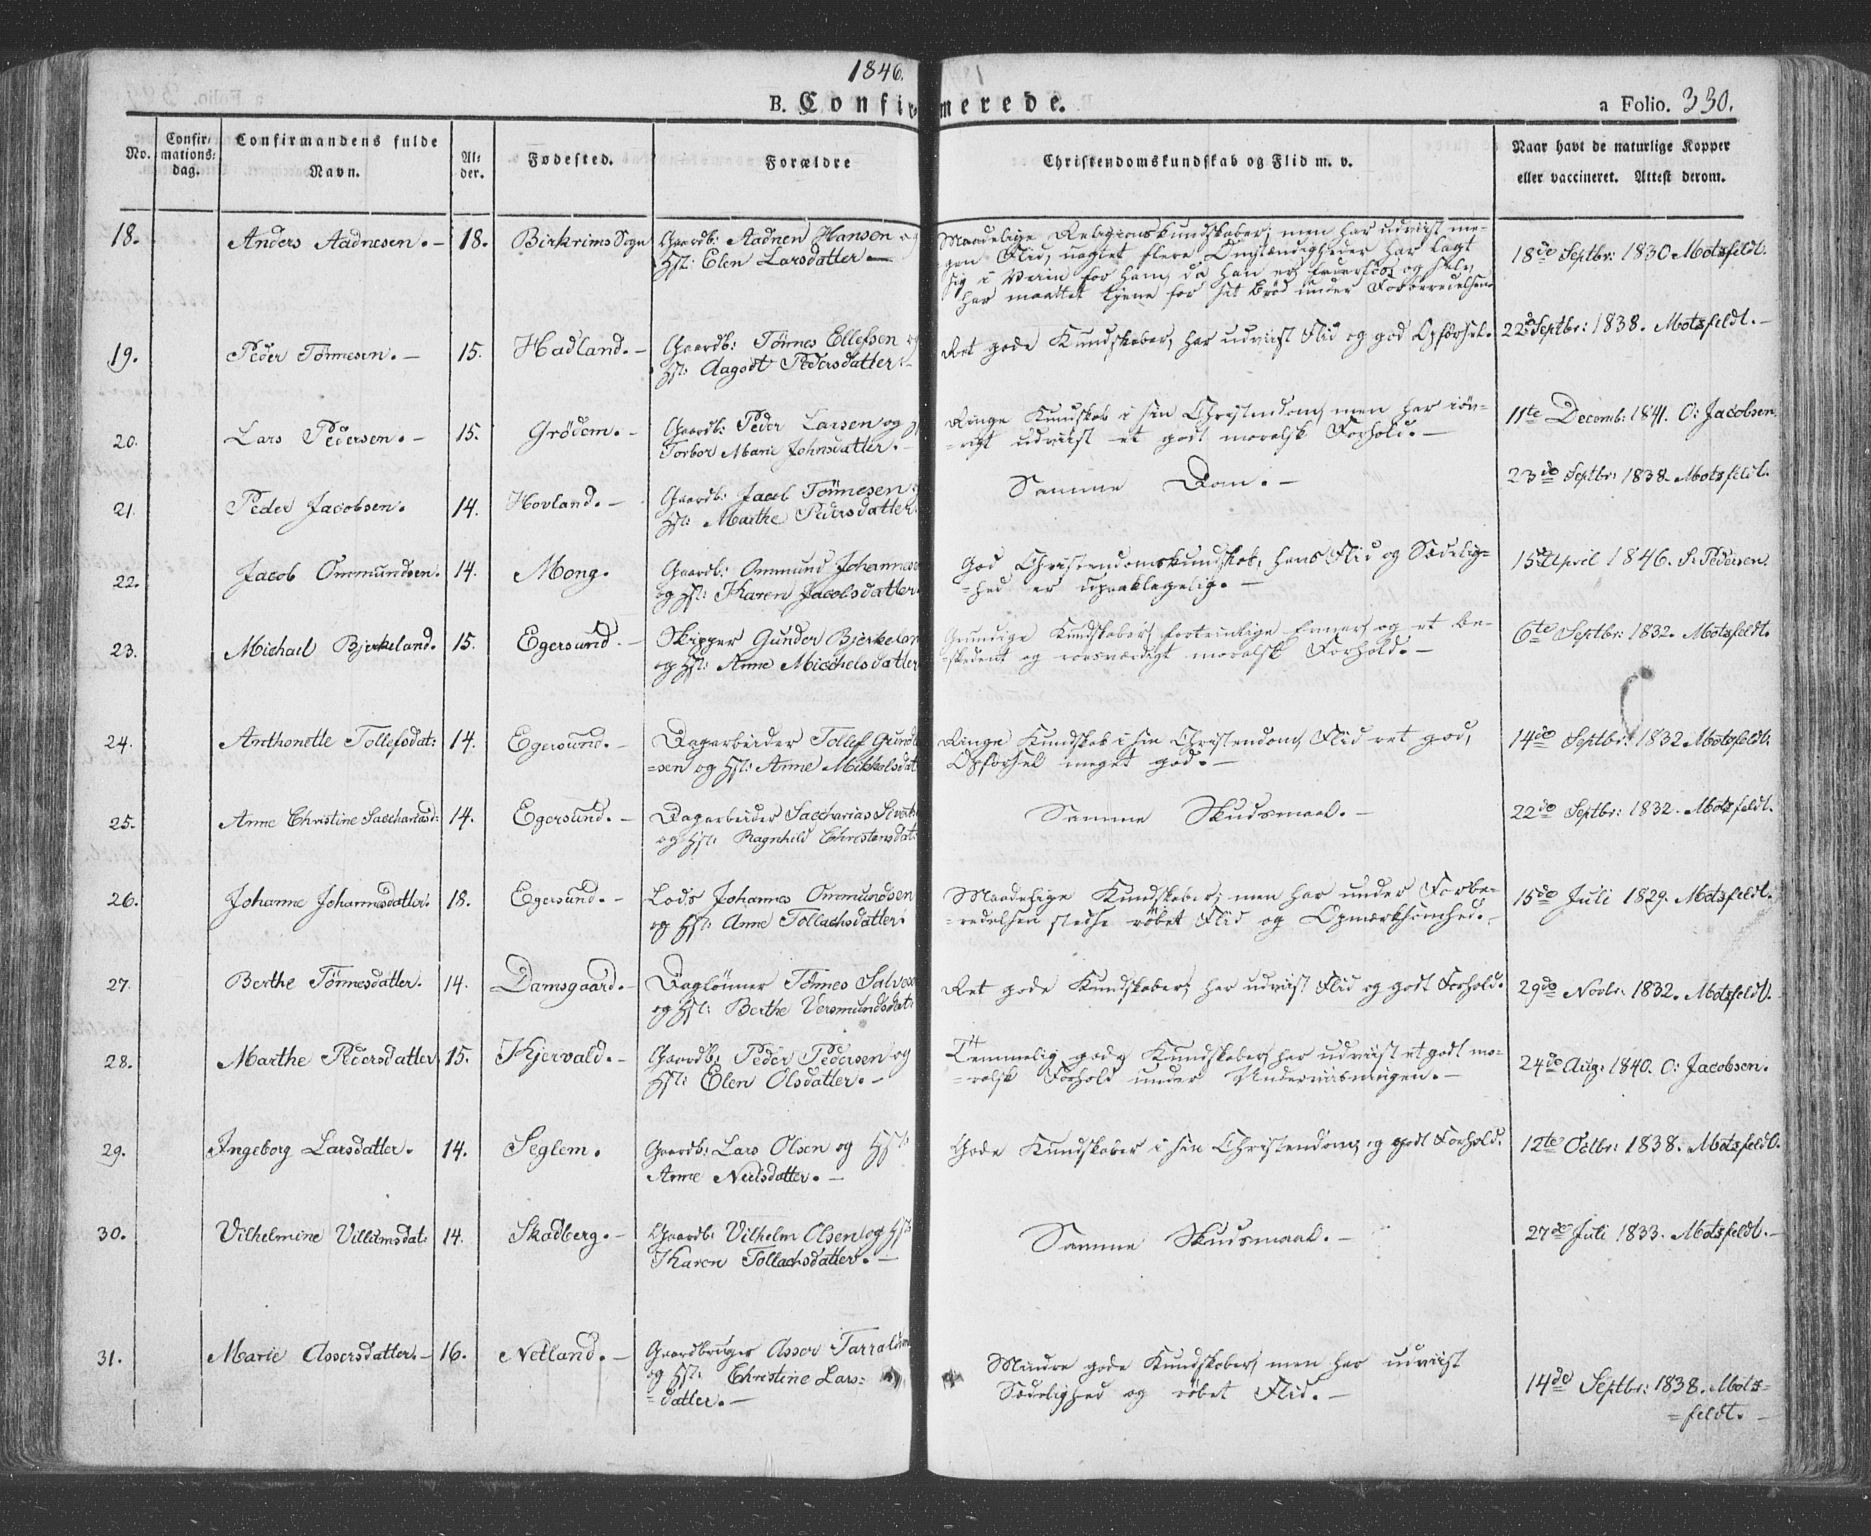 1846.
B. Confirmerede.
a Folio. 330.
No.
Confir-
mations-
dag.
Confirmandens fulde
Navn.
Al-
der.
Fødested.
Forældre
Christendomskundskab og Flid m. v.
Naar havt de naturlige Kopper
eller vaccineret. Attest derom.
18. Anders Aadnesen. — 18. Birkrims Sogn
Gaardb: Aadnen Hansen og
Hst: Elen Larsdatter —
Maadelige Religionskundskaber, men har udviist me-
gen Flid, uagtet flere Omstændigheder har lagt
sig i Veien for ham, da han er faderløs og selv
har maattet tjene for sit Brød under Forberedelsen.
18de Septbr: 1830 Motzfeldt.
19. Peder Tönnesen. — 15. Hadland. —
Gaardb: Tönnes Ellefsen og
Hst: Aagodt Pedersdatter. —
Ret gode Kundskaber, har udviist Flid og god Opførsel.
22de Septbr: 1838. Motzfeldt. —
20. Lars Pedersen. — 15. Grödem. —
Gaardb: Peder Larsen og
Torbor Marie Johnsdatter. —
Ringe Kundskab i sin Christendom, men har iöv-
=rigt udviist et godt moralsk Forhold. —
11te Decemb: 1841. O: Jacobsen.
21. Peder Jacobsen. 14. Hovland. —
Gaardb: Jacob Tönnesen
Hst: Marthe Pedersdatter.
Samme Dom. —
23de Septbr: 1838. Motzfeldt.
22. Jacob Ommundsen. 14. Mong.
Gaardb: Ommund Johannesen
og Hst: Karen Jacobsdatter.
God Christendomskundskab, hans Flid og Sædelig=
=hed er upaaklagelig. —
15de April 1846. S. Pedersen.
23. Michael Bjerkeland. 15. Egersund. —
Skipper Gunder Bjerkeland
og Hst: Anne Michelsdatter
Grundige Kundskaber, fortrinlige Evner, og et be-
=skedent og roesværdigt moralsk Forhold. —
6te Septbr: 1832. Motzfeldt.
24. Anthonette Tollefsdat: 14. Egersund. —
Dagarbeider Tollef
=sen og Hst: Anne Mikkelsdat
Ringe Kundskab i sin Christendom, Flid ret god,
Opførsel meget god. —
14de Septbr: 1832 Motzfeldt.
25. Anne Christine Sacchariasd: 14. Egersund. —
Dagarbeider Saccharias
og Hst: Ragnhild Christensdat:
Samme Skudsmaal. —
22de Septbr: 1832. Motzfeldt.
26. Johanne Johannesdatter. 18. Egersund. —
Lods Johannes Ommundsen
og Hst: Anne Tollachsdatter.
Maadelige Kundskaber, men har under Forbe-
=redelsen stedse röbet Flid og Opmærksomhed. —
15de Juli 1829. Motzfeldt.
27. Berthe Tönnesdatter. 14. Damsgaard. —
Daglönner Tönnes Salvesen
og Hst: Berthe Vermundsdat:
Ret gode Kundskaber, har udviist Flid og godt Forhold.
29de Novbr: 1832. Motzfeldt.
28. Marthe Pedersdatter 15. Kjervald. —
Gaardb: Peder Pedersen og
Hst: Elen Olsdatter. —
Temmelig gode Kundskaber, har udviist et godt mo-
=ralsk Forhold under Underviisningen. —
24de Aug: 1840. O: Jacobsen.
29. Ingeborg Larsdatter. 14. Seglem.
Gaardb: Lars Olsen og Hst:
Anne Neilsdatter. —
Gode Kundskaber i sin Christendom, og godt Forhold.
12te Octbr: 1838. Motzfeldt.
30. Vilhelmine Villumsdat: 14. Skadberg. —
Gaardb: Vilhelm Olsen og Hst:
Karen Tollachsdatter. —
Samme Skudsmaal. —
27de Juli 1833. Motzfeldt. —
31. Marie Assersdatter. — 16. Netland. —
Gaardbruger Asser Tarraldsen
og Hst: Christine Lars=
=datter. —
Mindre gode Kundskaber, men har udviist
Sædelighed og röbet Flid. —
14de Septbr: 1838. Motz=
=feldt. —